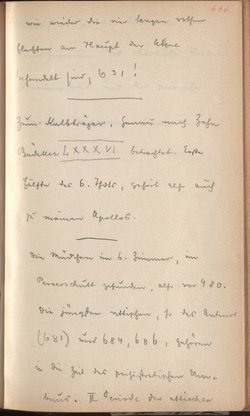 wie wieder die vier langen rothen
Flechten am Haupt der Athene
behandelt sind, 631!
Zum Kalbträger, genau nach Zahn
Bädeker LXXXVI betrachtet. Erste
Hälfte des 6. Jhdts, gehört also auch
zu meinen Apollos.
Die Mädchen im 6. Zimmer, im
Perserschutt gefunden, also vor 480.
Die jüngsten attischen, so des Antenor
(681) und 684, 686, gehören
in die Zeit des peisistratischen Um-
baus. II Periode der attischen